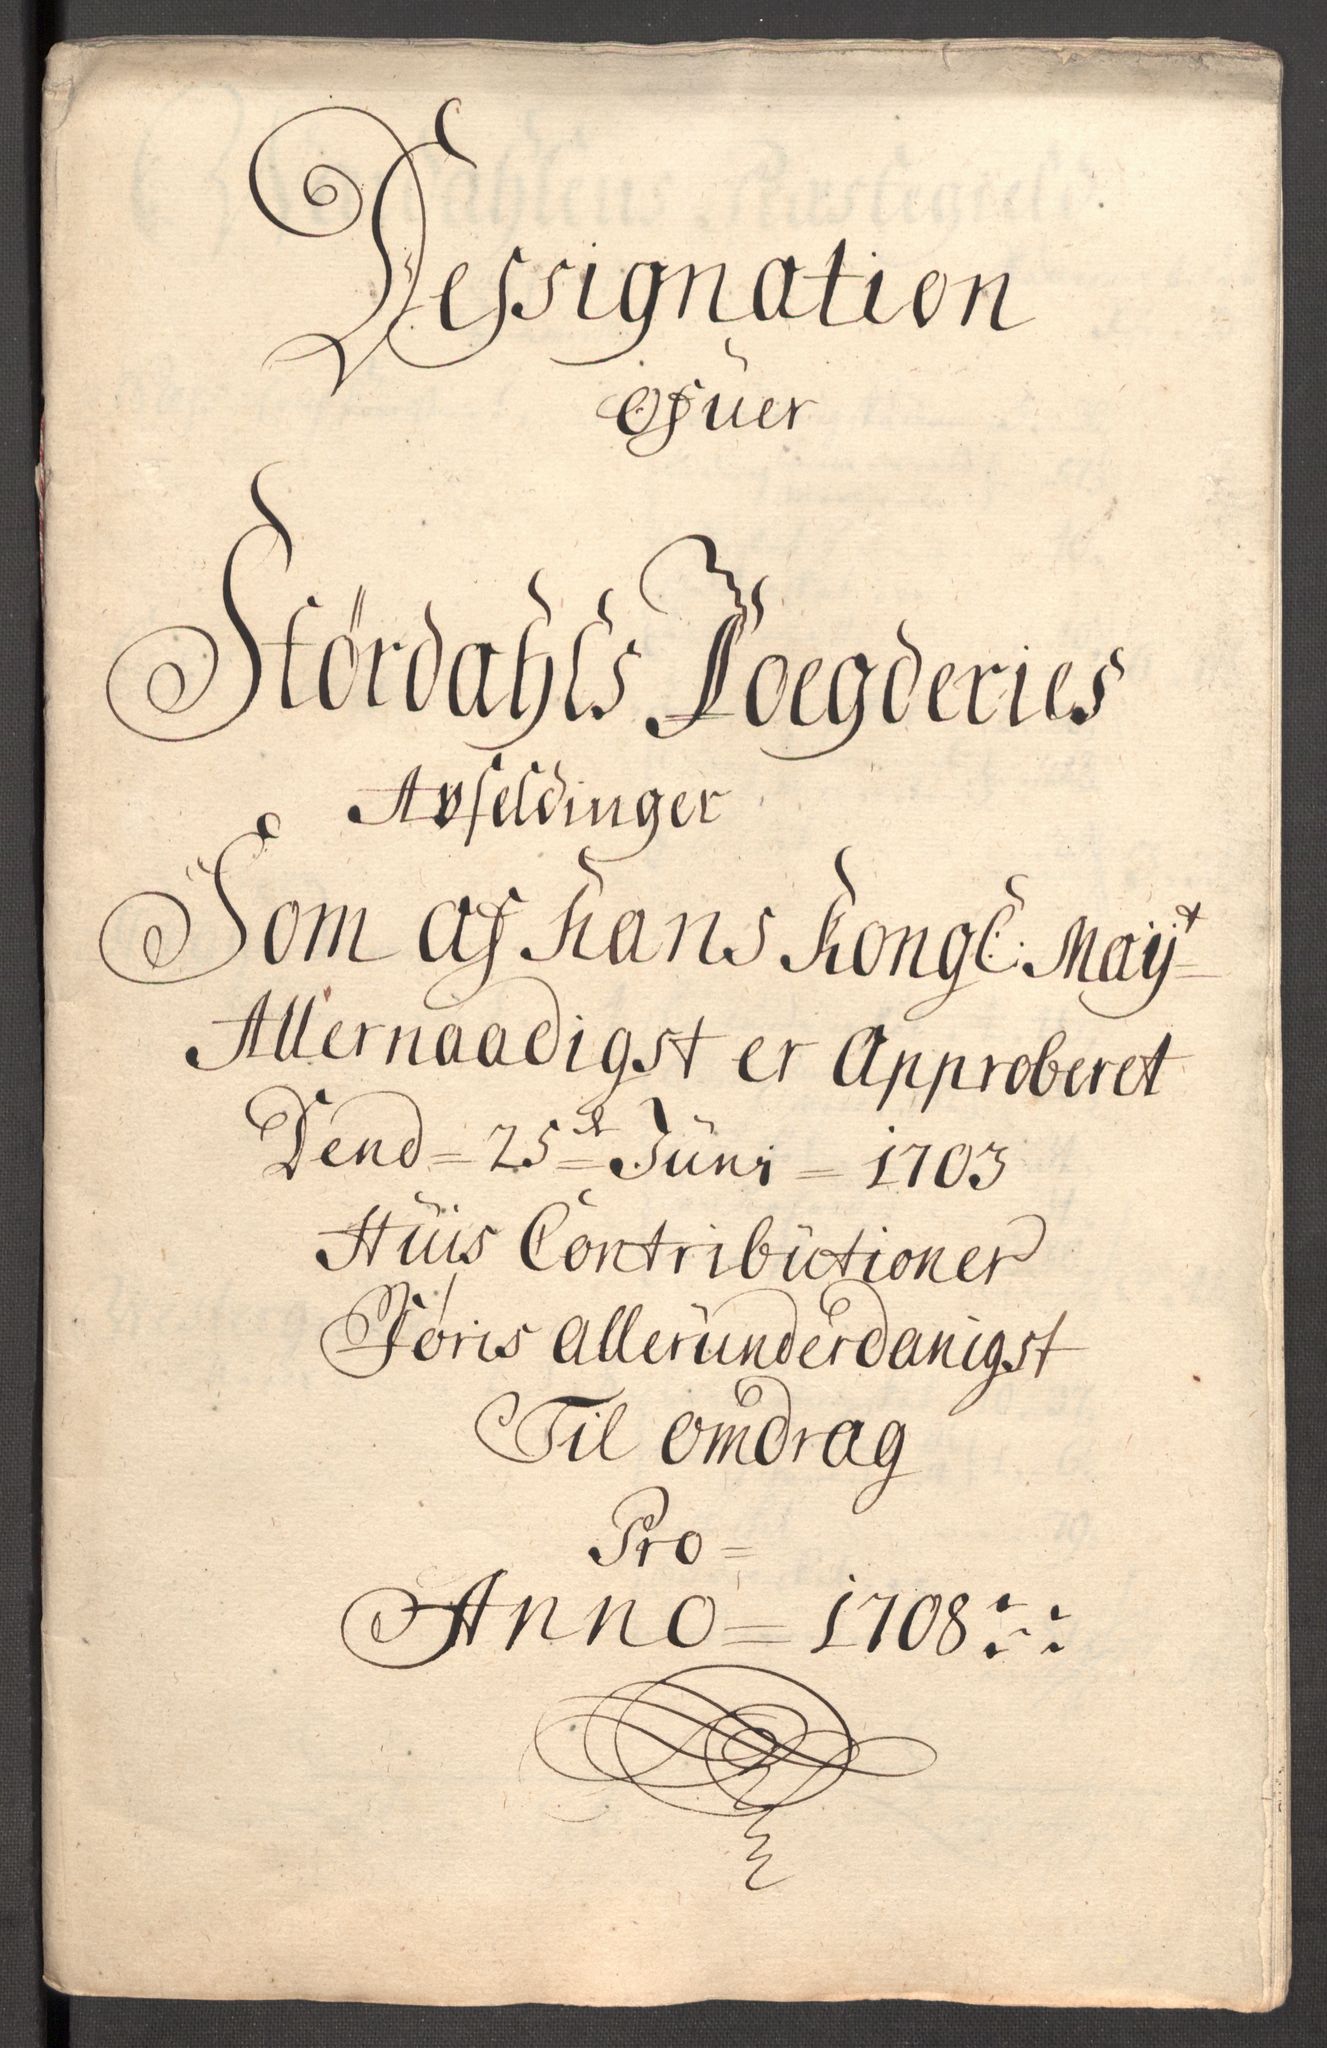 Dessignation
Ofuer
Størdahls Foegderies
Avfeldinger
Som af Hans Kongl: Mayt=
Allernaadigst er Approberet
Dend = 25de Juni = 1703
Huis Contributioner
Føris allerunderdanigst
Til omdrag
Pro =
Anno = 1708